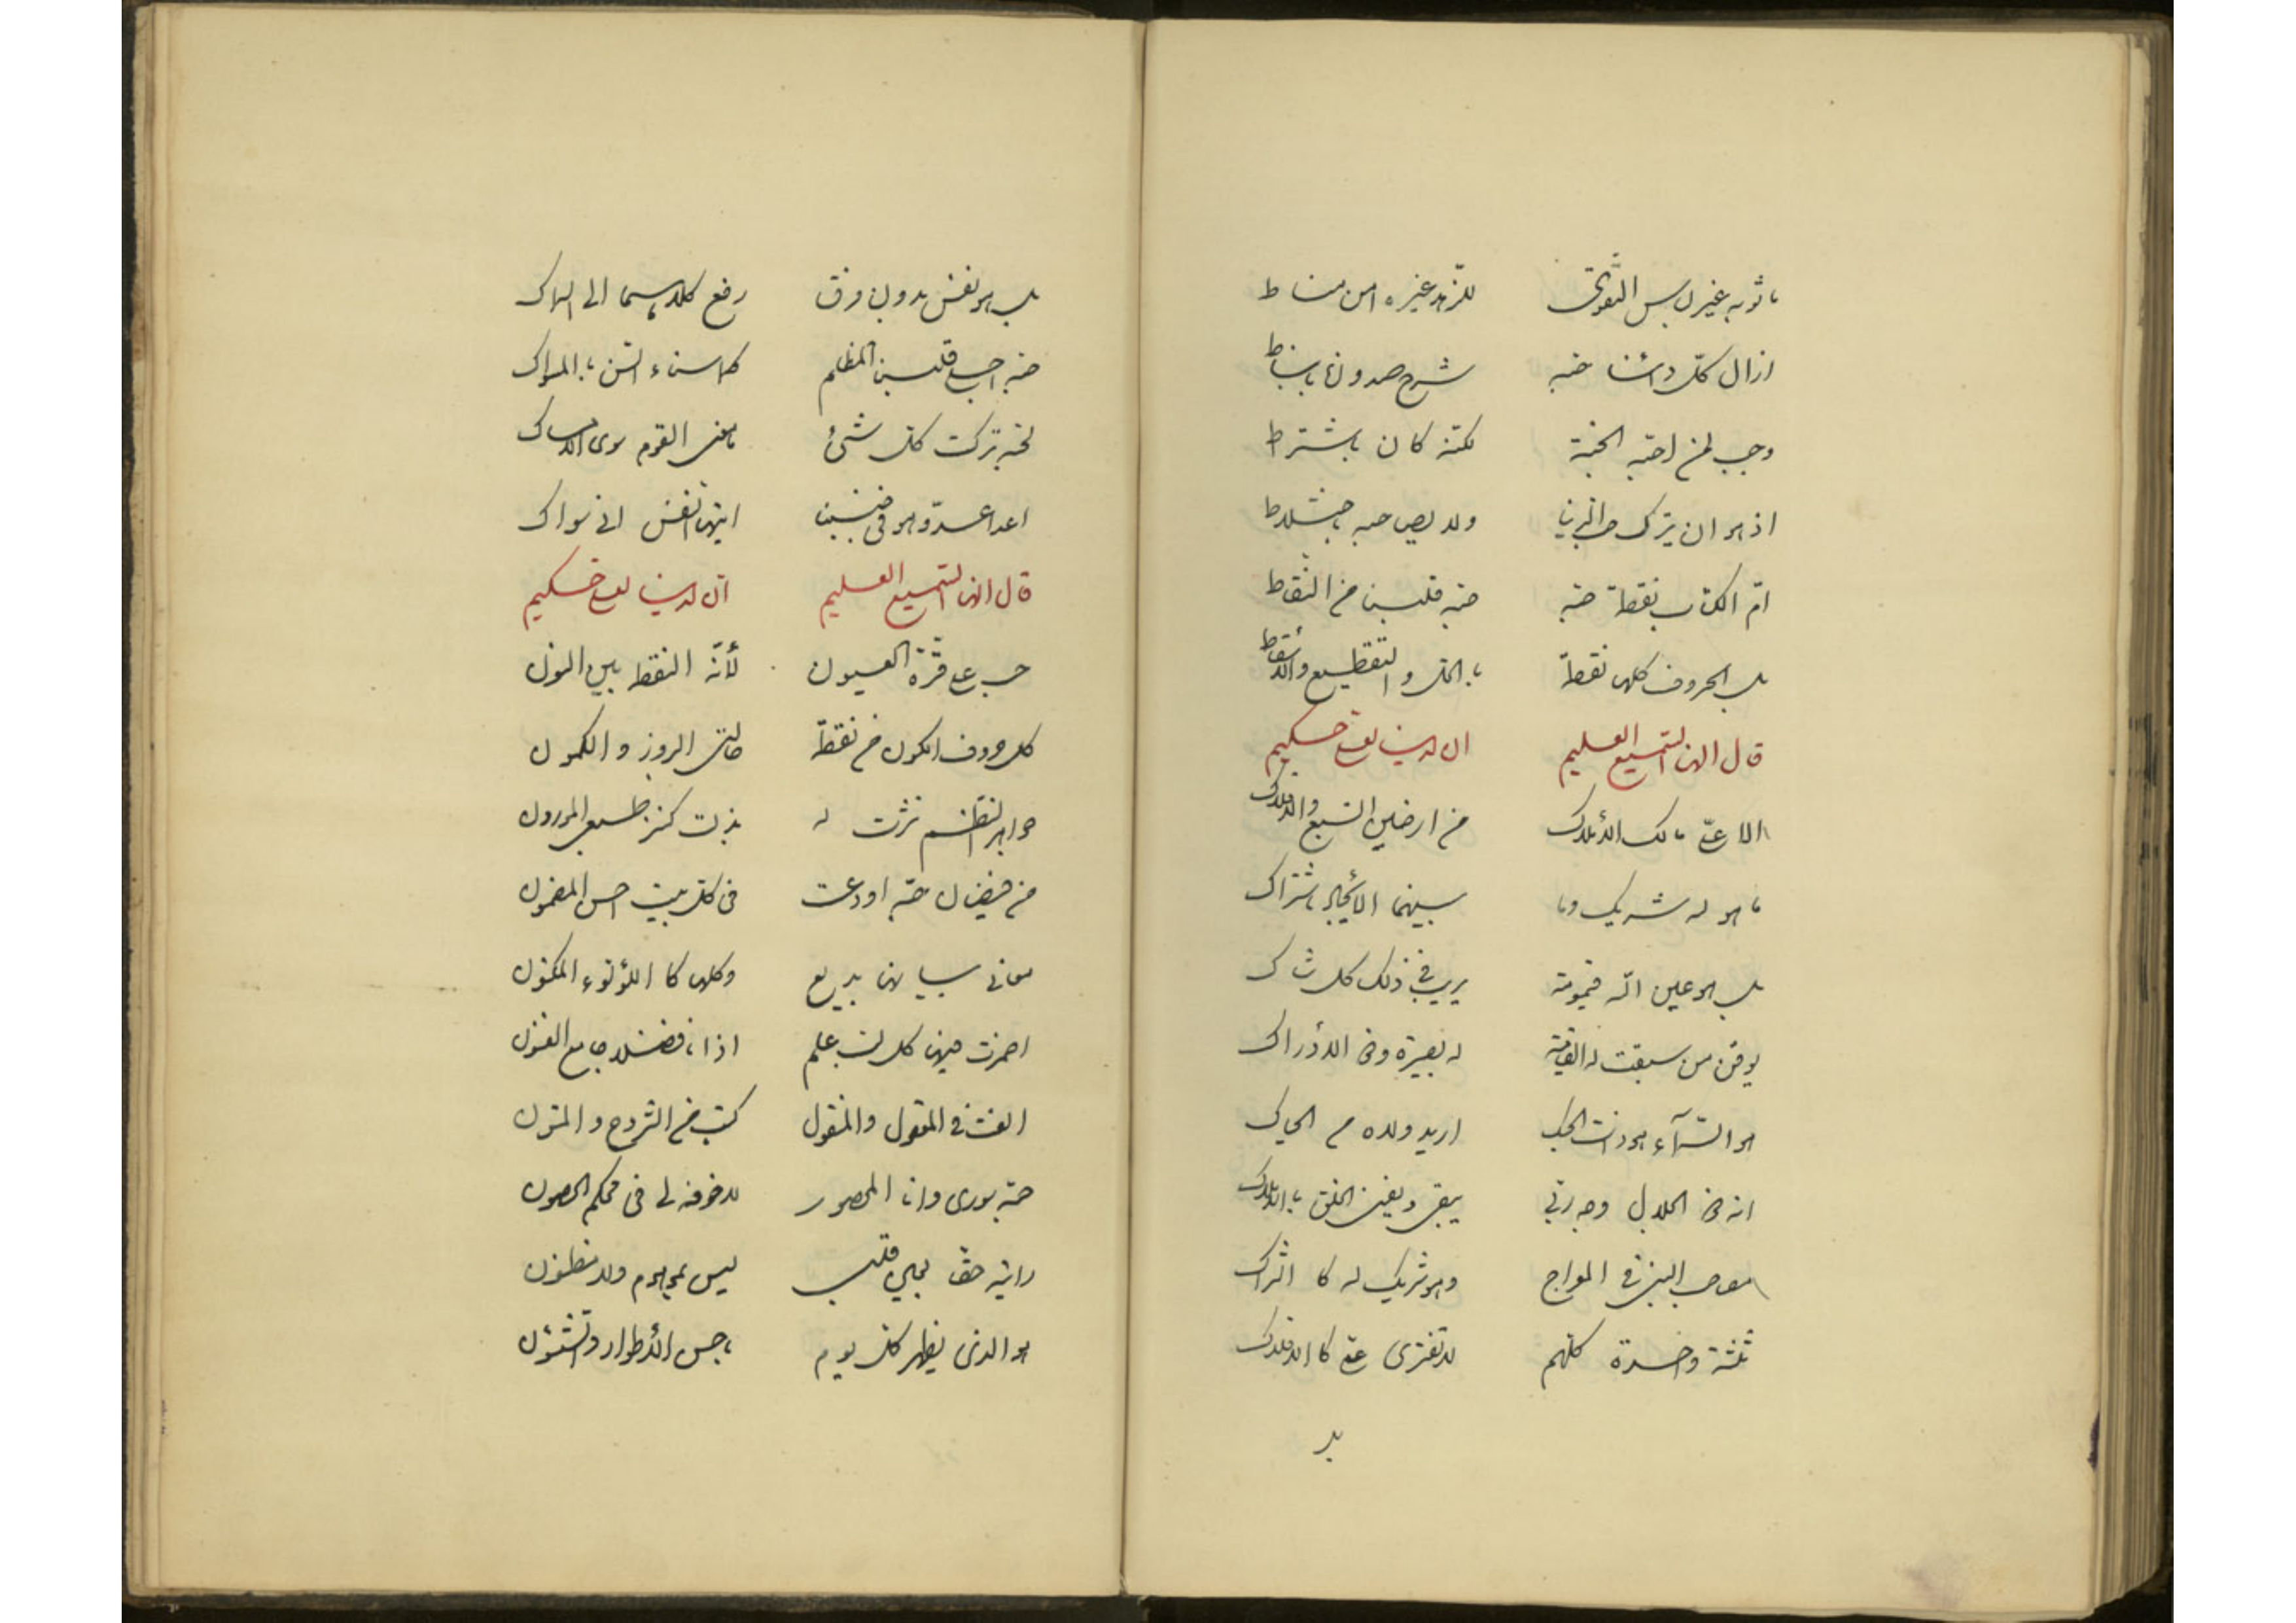 ما ثوبه غير لباس التقوى للزهد غيره من مناط
ازال كل داءنا حبه شرح صدورنا بانبساط
وجب لمن احبه الجنة لكنه كان باشتراط
اذ هو ان يترك حب الدنيا ولا يصاحبه باختلاط
ام الكتاب نقطة حبه حبة قلبي من النقاط
بل الحروف كلها نقطة والتقطيع والالتقاط
قال الهنا السميع العليم ان لدينا لعلي حكيم
الا علي مالك الاملاك من ارضين السبع والافلاك
ما هو له شريك وما بينهما الا يجاد باشتراك
بل هو عين الله قيومه يريب في ذلك كل شاك
يوقن من سبقت له العناية له بصيرة وفي الادراك
هو السماء هو ذات الحبك اريد ولاه من الحباك
انه ذي الجلال وجه ربي يبقى ويفنى الخلق بالهلاك
صاحب النبي في المعراج وهو شريك له كا اشراك
ثلثة واحدة كلهم لا تفتري علي كا الافاك
بل هو نفس بدون فرق رفع كلاهما الى السماك
حبه اجلى قلبي المظلم كما سناء السن بالسواك
لحبه تركت كل شيء ما عند القوم سوى الامساك
اعدا عدو هو في جنبي ايتها النفس اني سواك
قال الهنا السميع العليم ان لدينا لعلي حكيم
حب علي قرة العيون لأنه النقطة بين النون
كل حروف الكون من نقطة حالتي البروز والكمون
جواهر النظم نثرت له بذلت كنز طبعي الموزون
من فيضان حبه اودعت في كل بيت احسن المضمون
معاني بيانها بديع وكلها كا اللؤلوء المكنون
احرزت فيها كل لب علم اذا انا فضلا جامع الفنون
الفت في المعقول والمنقول كتب من الشروح والمتون
حبه سوري وانا المحصور لا خوف لي في محكم الحصون
رايته حقا بعين قلبي ليس بموهوم ولا مظنون
هو الذي يظهر كل يوم باحسن الأطوار والشئون
بل